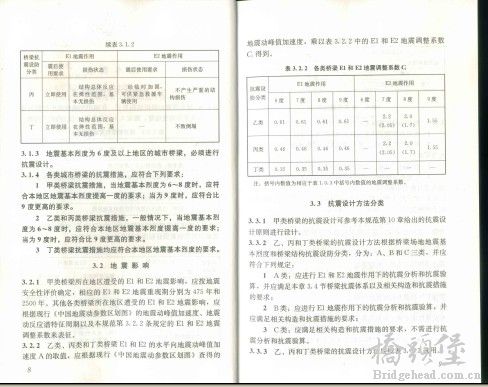 续表 3.1.2
桥梁抗震设防分类
E1 地震作用
E2 地震作用
震后使用要求
损伤状态
震后使用要求
损伤状态
丙
立即使用
结构总体反应在弹性范围，基本无损伤
经临时加固，可供紧急救援车辆使用
不产生严重的结构损伤
丁
立即使用
结构总体反应在弹性范围，基本无损伤
—
不致倒塌
3.1.3 地震基本烈度为 6 度及以上地区的城市桥梁，必须进行
抗震设计。
3.1.4 各类城市桥梁的抗震措施，应符合下列要求：
1 甲类桥梁抗震措施，当地震基本烈度为 6～8 度时，应符
合本地区地震基本烈度提高一度的要求；当为 9 度时，应符合比
9 度更高的要求。
2 乙类和丙类桥梁抗震措施，一般情况下，当地震基本烈
度为 6～8 度时，应符合本地区地震基本烈度提高一度的要求；
当为 9 度时，应符合比 9 度更高的要求。
3 丁类桥梁抗震措施均应符合本地区地震基本烈度的要求。
3.2 地 震 影 响
3.2.1 甲类桥梁所在地区遭受的 E1 和 E2 地震影响，应按地震
安全性评价确定，相应的 E1 和 E2 地震重现期分别为 475 年和
2500 年。其他各类桥梁所在地区遭受的 E1 和 E2 地震影响，应
根据现行《中国地震动参数区划图》的地震动峰值加速度、地震
动反应谱特征周期以及本规范第 3.2.2 条规定的 E1 和 E2 地震
调整系数来表征。
3.2.2 乙类、丙类和丁类桥梁 E1 和 E2 的水平向地震动峰值加
速度 A 的取值，应根据现行《中国地震动参数区划图》查得的
8
地震动峰值加速度，乘以表 3.2.2 中的 E1 和 E2 地震调整系数
得到。
表 3.2.2 各类桥梁 E1 和 E2 地震调整系数
抗震设防分类
E1 地震作用
E2 地震作用
6 度 7 度 8 度 9 度 6 度 7 度 8 度 9 度
乙类 0.61 0.61 0.61 0.61 — 2.2 (2.05) 2.0 (1.7) 1.55
丙类 0.46 0.46 0.46 0.46 — 2.2 (2.05) 2.0 (1.7) 1.55
丁类 0.35 0.35 0.35 0.35 — — — —
3.3 抗震设计方法分类
3.3.1 甲类桥梁的抗震设计可参考本规范第 10 章给出的抗震设
计原则进行设计。
3.3.2 乙、丙和丁类桥梁的抗震设计方法根据桥梁场地地震基
本烈度和桥梁结构抗震设防分类，分为：A、B 和 C 三类，并应
符合下列规定：
1 A 类，应进行 E1 和 E2 地震作用下的抗震分析和抗震验
算，并应满足本章 3.4 节桥梁抗震体系以及相关构造和抗震措施
的要求；
2 B 类，应进行 E1 地震作用下的抗震分析和抗震验算，并
应满足相关构造和抗震措施的要求；
3 C 类，应满足相关构造和抗震措施的要求，不需进行抗
震分析和抗震验算。
3.3.3 乙、丙和丁类桥梁的抗震设计方法应按表 3.3.3 选用。
橋頭堡
Bridgehead.com.cn